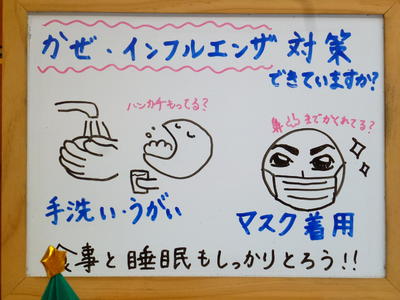 かぜ・インフルエンザ対策
できていますか?
ハンカチもってる?
鼻までかくれてる?
手洗い・うがい
マスク着用
食事と睡眠もしっかりとろう!!